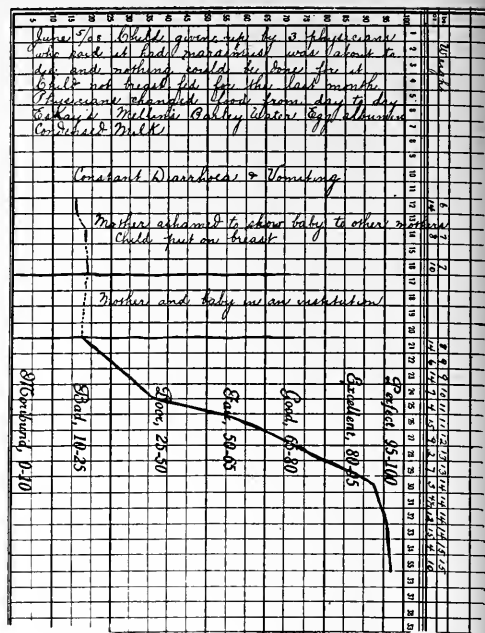 5 10 15 20 25 30 35 40 45 50 55 60 65 70 75 80 85 90 95 100
June 5/08 Child given up by 3 physicians
who said it had marasmus was about to
die and nothing could be done for it
Child not breast fed for the last month
Physicians changed food from day to day
Eskay's Mellen's Barley Water Egg albumin
Condensed Milk
Constant Diarrhoea & Vomiting
Mother ashamed to show baby to other mothers
Child put on breast
Mother and baby in an institution
Moribund, 0-10
Bad, 10-25
Poor, 25-50
Fair, 50-65
Good, 65-80
Excellent, 80-95
Perfect, 95-100